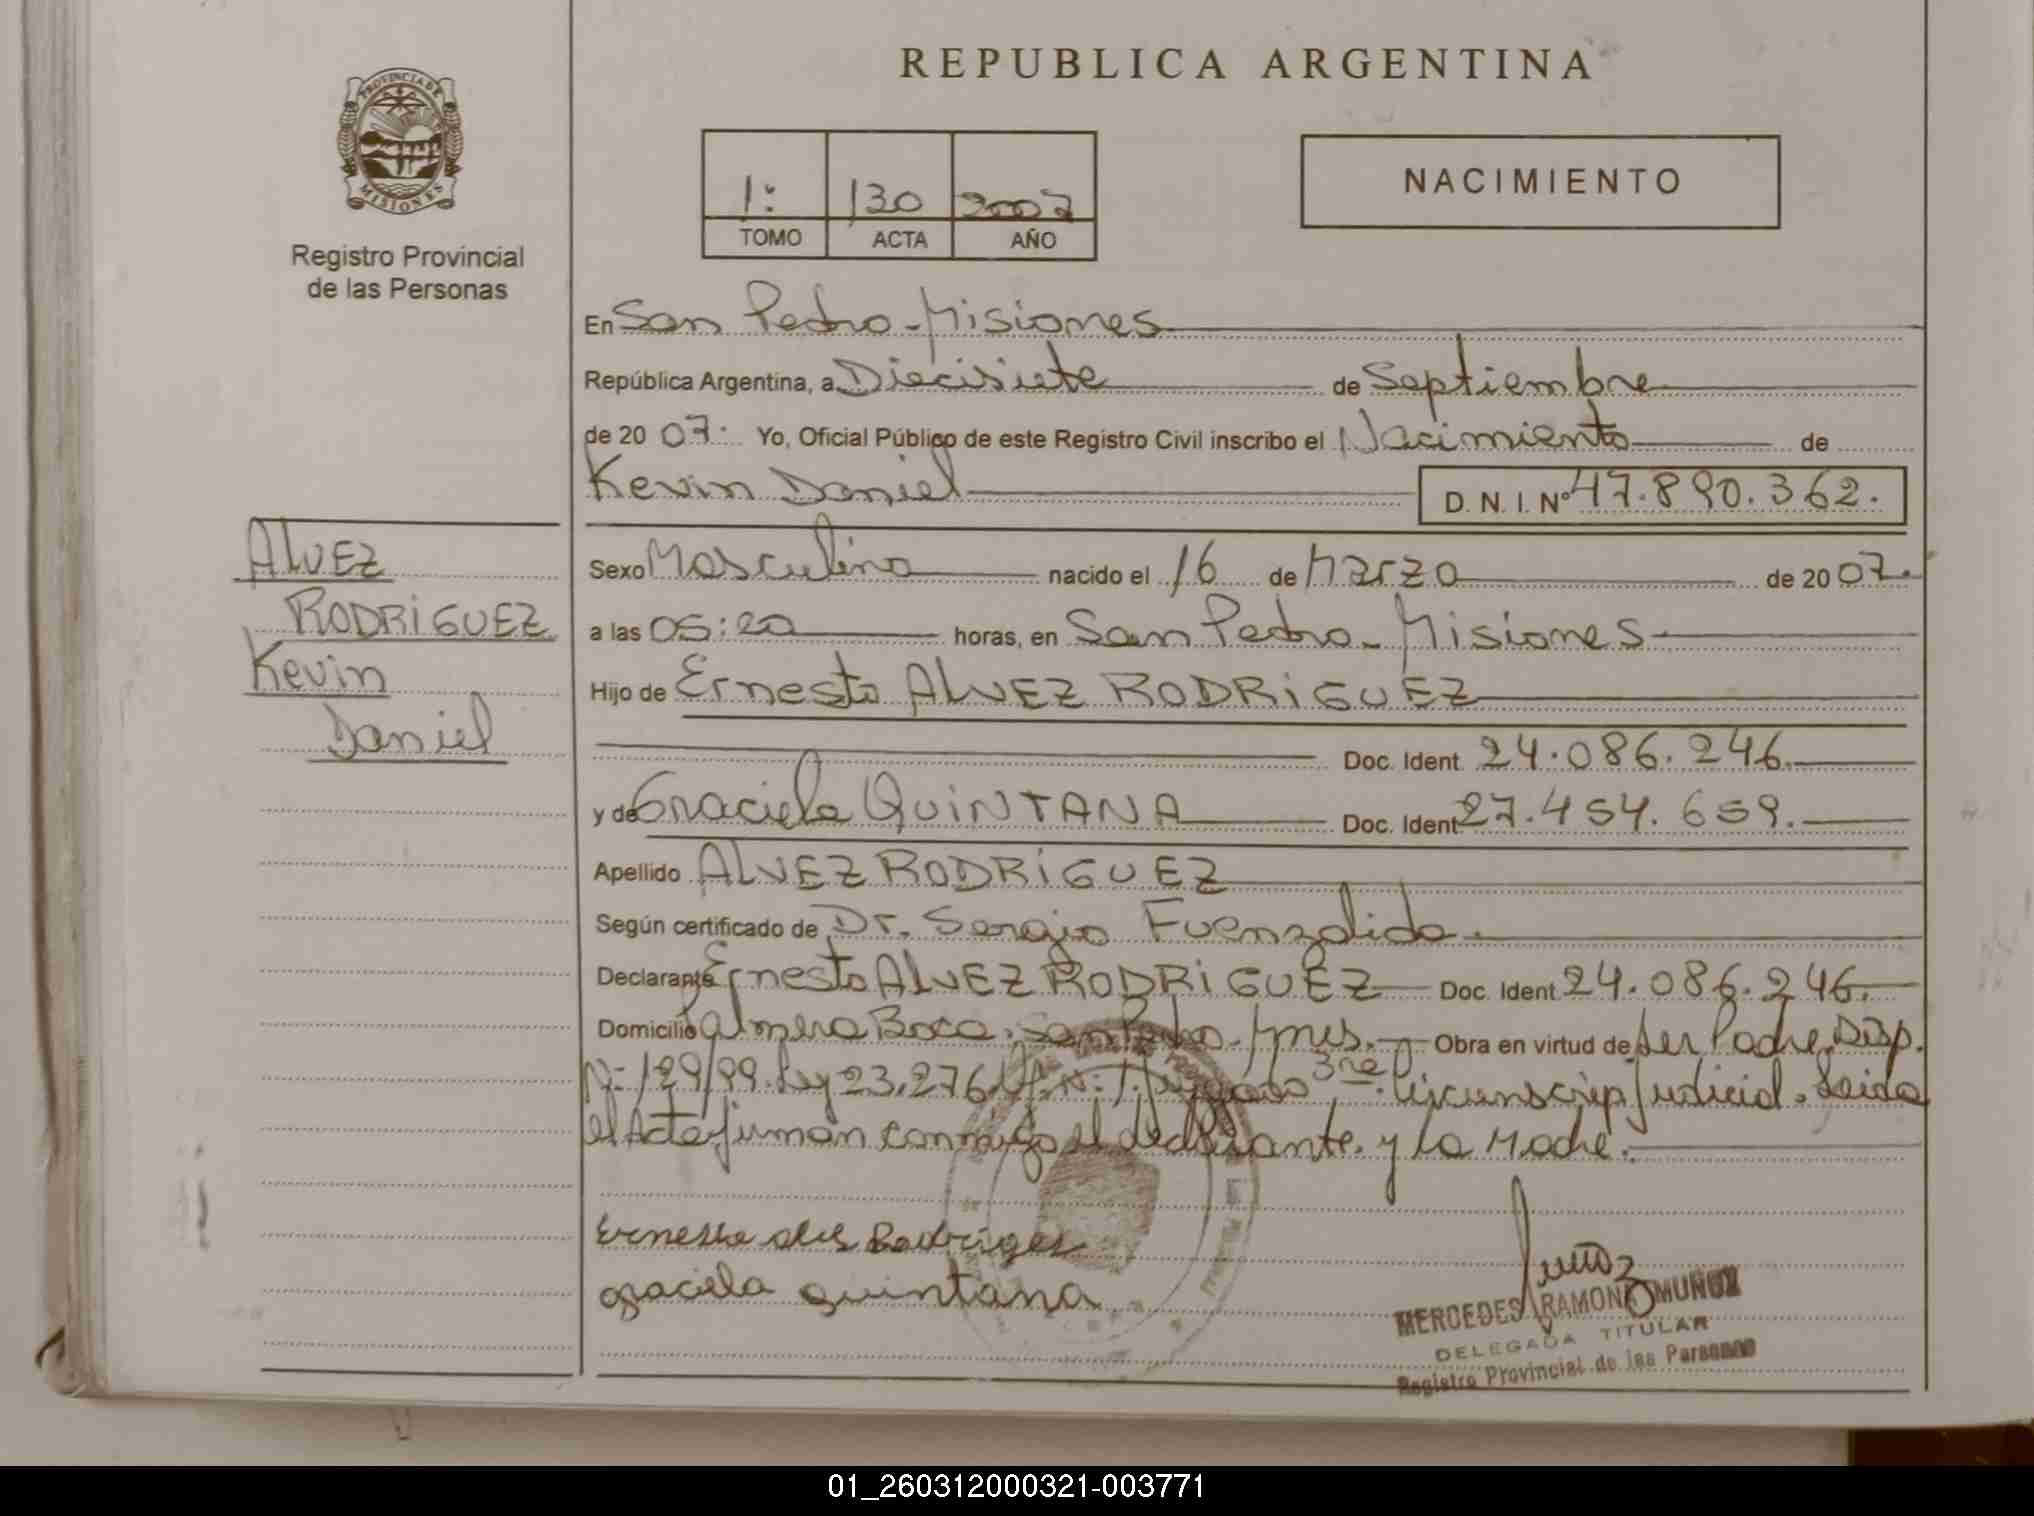 PROVINCIA DE
MISIONES
Registro Provincial
de las Personas
REPUBLICA ARGENTINA
1: 130 2007
TOMO ACTA AÑO
NACIMIENTO
En San Pedro - Misiones
República Argentina, a Diecisiete de Septiembre
de 20 07. Yo, Oficial Público de este Registro Civil inscribo el Nacimiento de
Kevin Daniel D. N. I. Nº 47.890.362.
ALVEZ
RODRIGUEZ
Kevin
Daniel
Sexo Masculino nacido el 16 de Marzo de 20 07.
a las 05:20 horas, en San Pedro - Misiones
Hijo de Ernesto ALVEZ RODRIGUEZ
Doc. Ident. 24.086.246.
y de Graciela QUINTANA Doc. Ident 27.454.659.
Apellido ALVEZ RODRIGUEZ
Según certificado de Dr. Sergio Fuenzalida.
Declarante Ernesto ALVEZ RODRIGUEZ Doc. Ident 24.086.246.
Domicilio Palmera Boca. San Pedro - Mnes. Obra en virtud de Ser Padre. Disp.
N: 129/99. Ley 23.276 N: 1. Juzgado 3ra. Circunscrip Judicial. Leida
el Acta firman conmigo el declarante. y la Madre.
Ernesto Rodrigez
graciela quintana
MERCEDES RAMONA MUÑOZ
DELEGADA TITULAR
Registro Provincial de las Personas
01_260312000321-003771